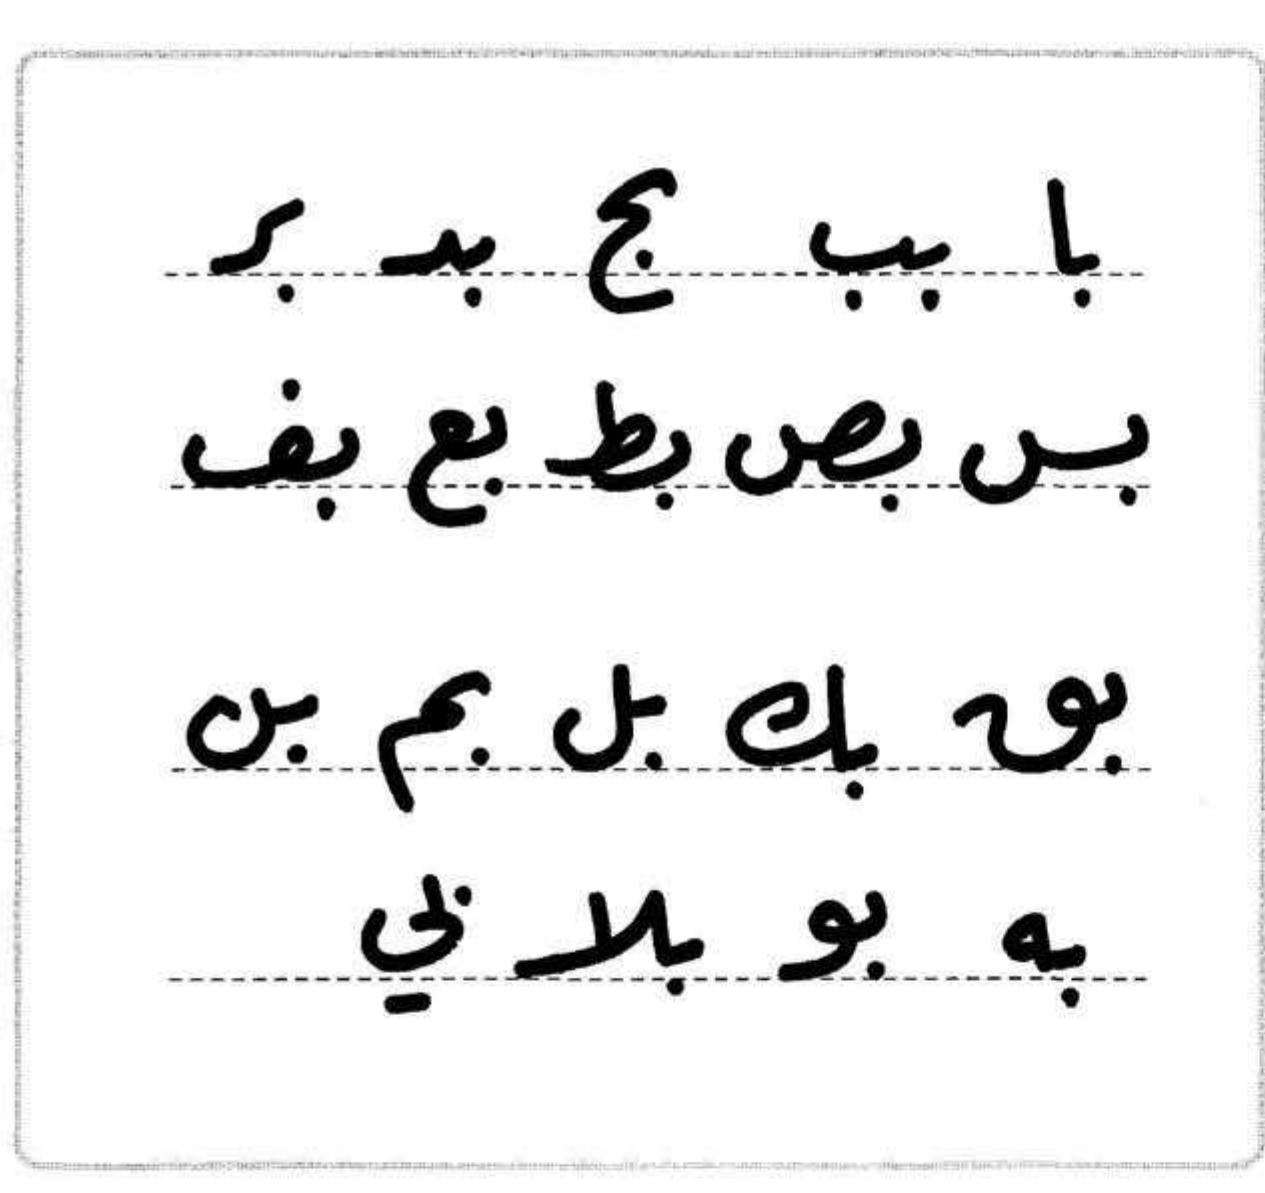 با بب بح بد بر
بس بص بط بع بف
بق بك بل بم بن
به بو بلا